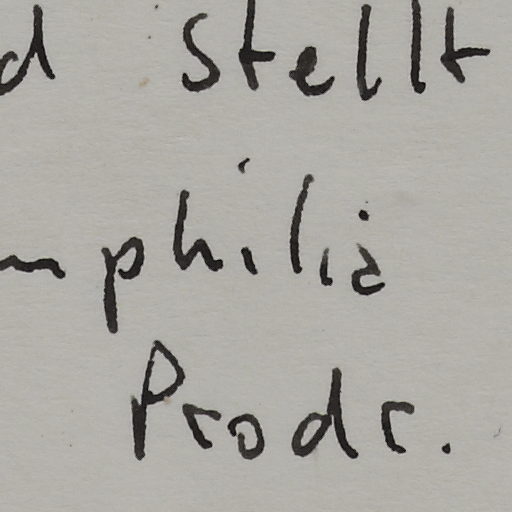 d stellt
mphilia
Prodr.